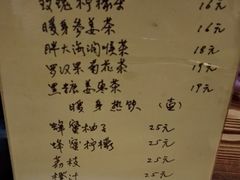 玫瑰柠檬茶 16元
暖身参姜茶 16元
胖大海润喉茶 18元
罗汉果菊花茶 19元
黑糖姜枣茶 19元
暖身热饮（壶）
蜂蜜柚子 25元
蜂蜜柠檬 25元
荔枝 25元
橙汁 25元